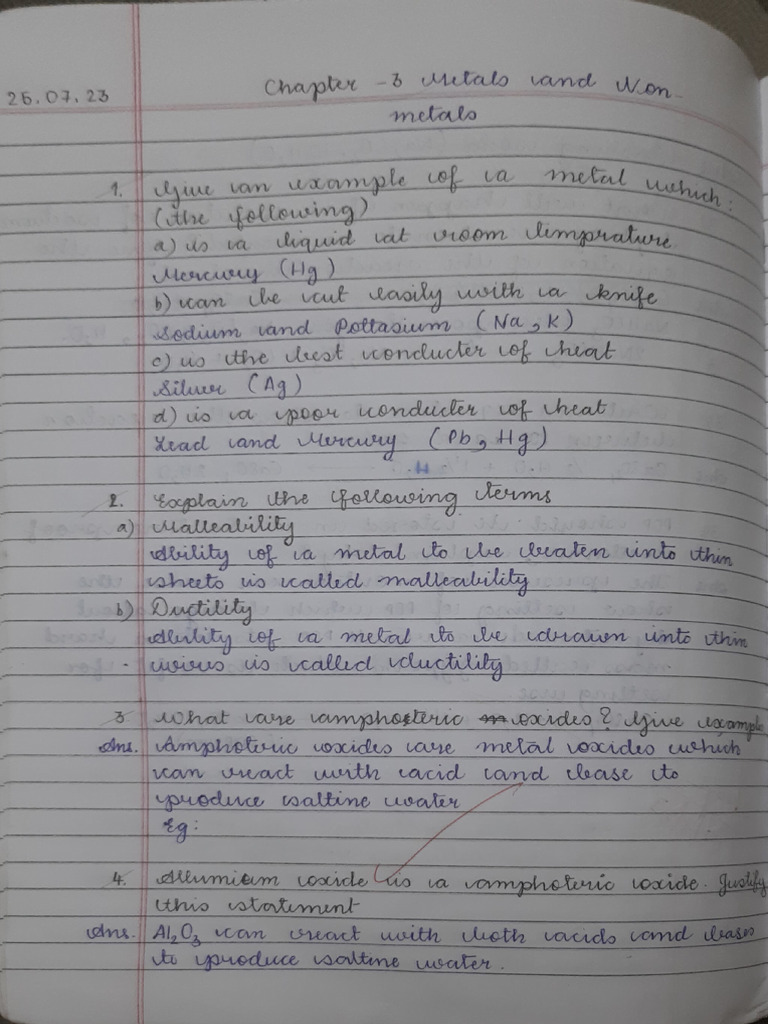 25.07.23
Chapter - 3 Metals and Non-
metals
1. Give an example of a metal which:
(the following)
a) is a liquid at room timprature
Mercury (Hg)
b) can be cut easily with a knife
Sodium and Pottasium (Na, K)
c) is the best conducter of heat
Silver (Ag)
d) is a poor conducter of heat
Lead and Mercury (Pb, Hg)
2. Explain the following terms
a) Malleability
Ability of a metal to be beaten into thin
sheets is called malleability
b) Ductility
Ability of a metal to be drawn into thin
wires is called ductility
3 What are amphoteric oxides? Give example
Ans. Amphoteric oxides are metal oxides which
can react with acid and base to
produce saltine water
Eg:
4. Allumium oxide is a amphoteric oxide. Justify
this statement
Ans. Al₂O₃ can react with both acids and bases
to produce saltine water.